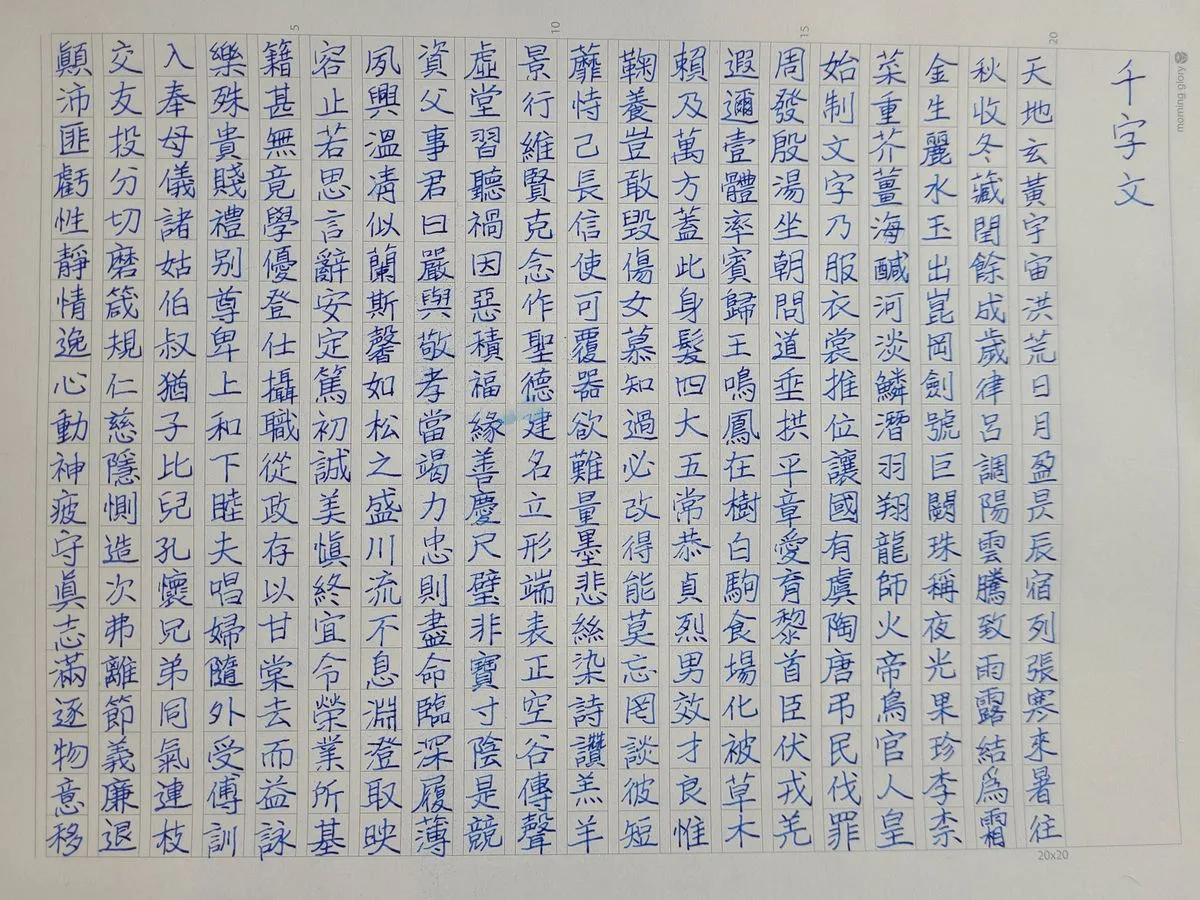 千字文
天地玄黃宇宙洪荒日月盈昃辰宿列張寒來暑往
秋收冬藏閏餘成歲律呂調陽雲騰致雨露結爲霜
金生麗水玉出崑岡劍號巨闕珠稱夜光果珍李柰
菜重芥薑海鹹河淡鱗潛羽翔龍師火帝鳥官人皇
始制文字乃服衣裳推位讓國有虞陶唐弔民伐罪
周發殷湯坐朝問道垂拱平章愛育黎首臣伏戎羌
遐邇壹體率賓歸王鳴鳳在樹白駒食場化被草木
賴及萬方蓋此身髮四大五常恭貞烈男效才良惟
鞠養豈敢毀傷女慕知過必改得能莫忘罔談彼短
靡恃己長信使可覆器欲難量墨悲絲染詩讚羔羊
景行維賢克念作聖德建名立形端表正空谷傳聲
虛堂習聽禍因惡積福緣善慶尺璧非寶寸陰是競
資父事君曰嚴與敬孝當竭力忠則盡命臨深履薄
夙興溫凊似蘭斯馨如松之盛川流不息淵澄取映
容止若思言辭安定篤初誠美愼終宜令榮業所基
籍甚無竟學優登仕攝職從政存以甘棠去而益詠
樂殊貴賤禮別尊卑上和下睦夫唱婦隨外受傅訓
入奉母儀諸姑伯叔猶子比兒孔懷兄弟同氣連枝
交友投分切磨箴規仁慈隱惻造次弗離節義廉退
顚沛匪虧性靜情逸心動神疲守眞志滿逐物意移
5
10
15
20
morning glory
20x20